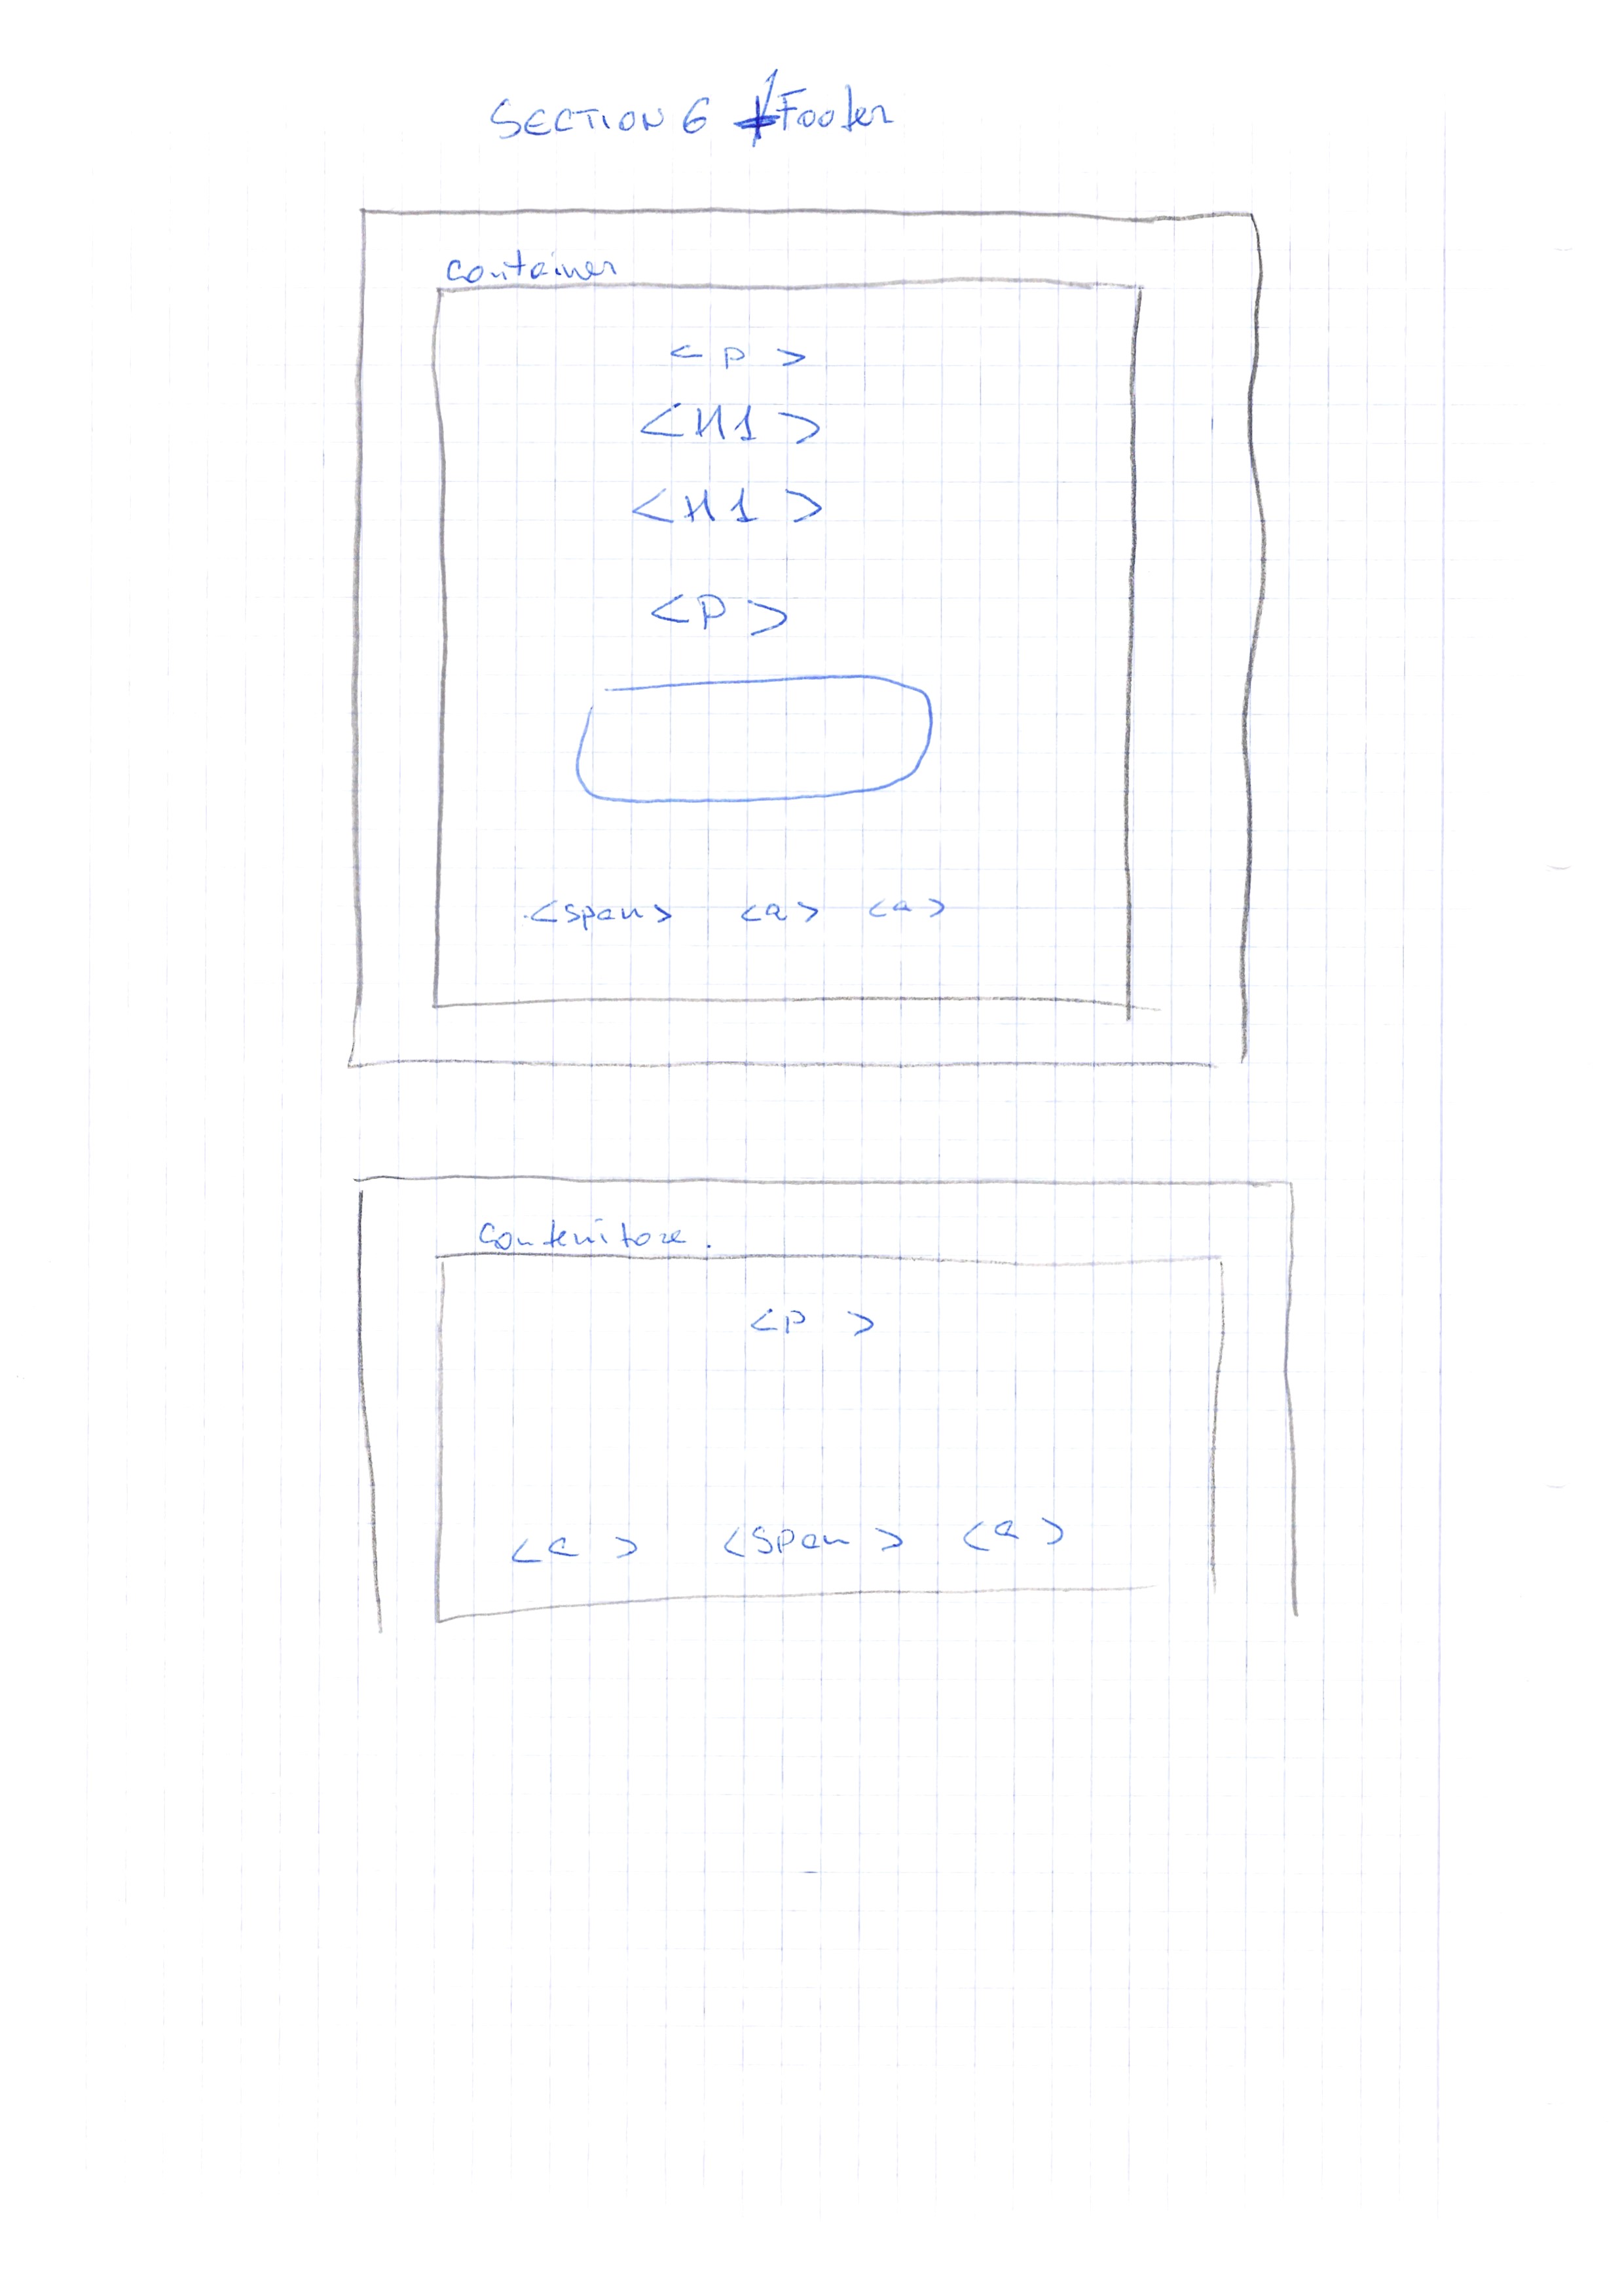 SECTION 6 / Footer
container
<p>
<H1>
<H1>
<P>
<span> <a> <a>
contenitore.
<P>
<a> <span> <a>